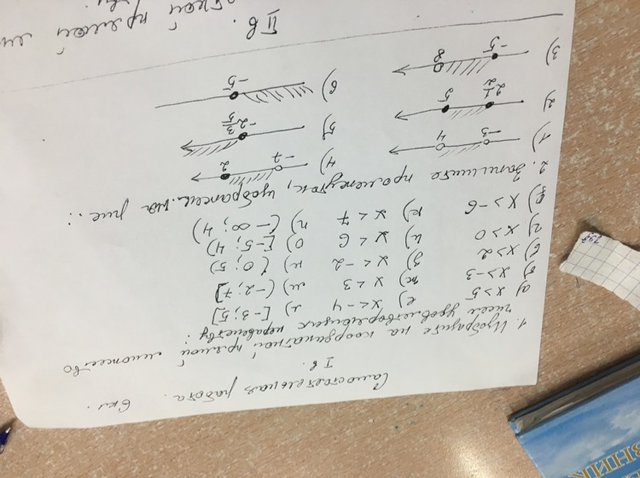 Самостоятельная работа. 6 кл.
I в.
1. Изобразите на координатной прямой множество
чисел удовлетворяющих неравенству:
а) x > 5 е) x < -4 л) [-3; 5]
б) x > -3 ж) x < 3 м) (-2; 7]
в) x > 2 з) x < -2 н) (0; 5)
г) x > 0 и) x < 6 о) [-5; 4)
д) x > -6 к) x < 7 п) (-∞; 4)
2. Запишите промежуток, изображен. на рис.:
1) -3 4
2) 2 1/2 5
3) -5 8
4) -7 2
5) -2 3/5
6) -5
II в.